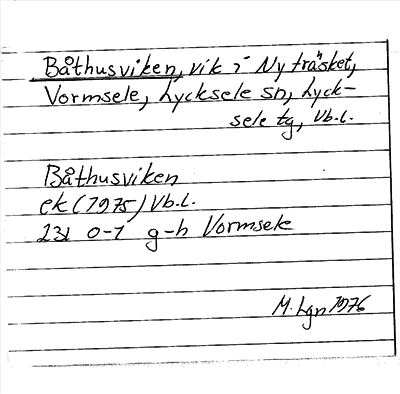 Båthusviken, vik i Nyträsket,
Vormsele, Lycksele sn, Lyck-
sele tg, Vb.l.
Båthusviken
ek (1975) Vb.l.
23I 0-1 g-h Vormsele
M. Lgn 1976